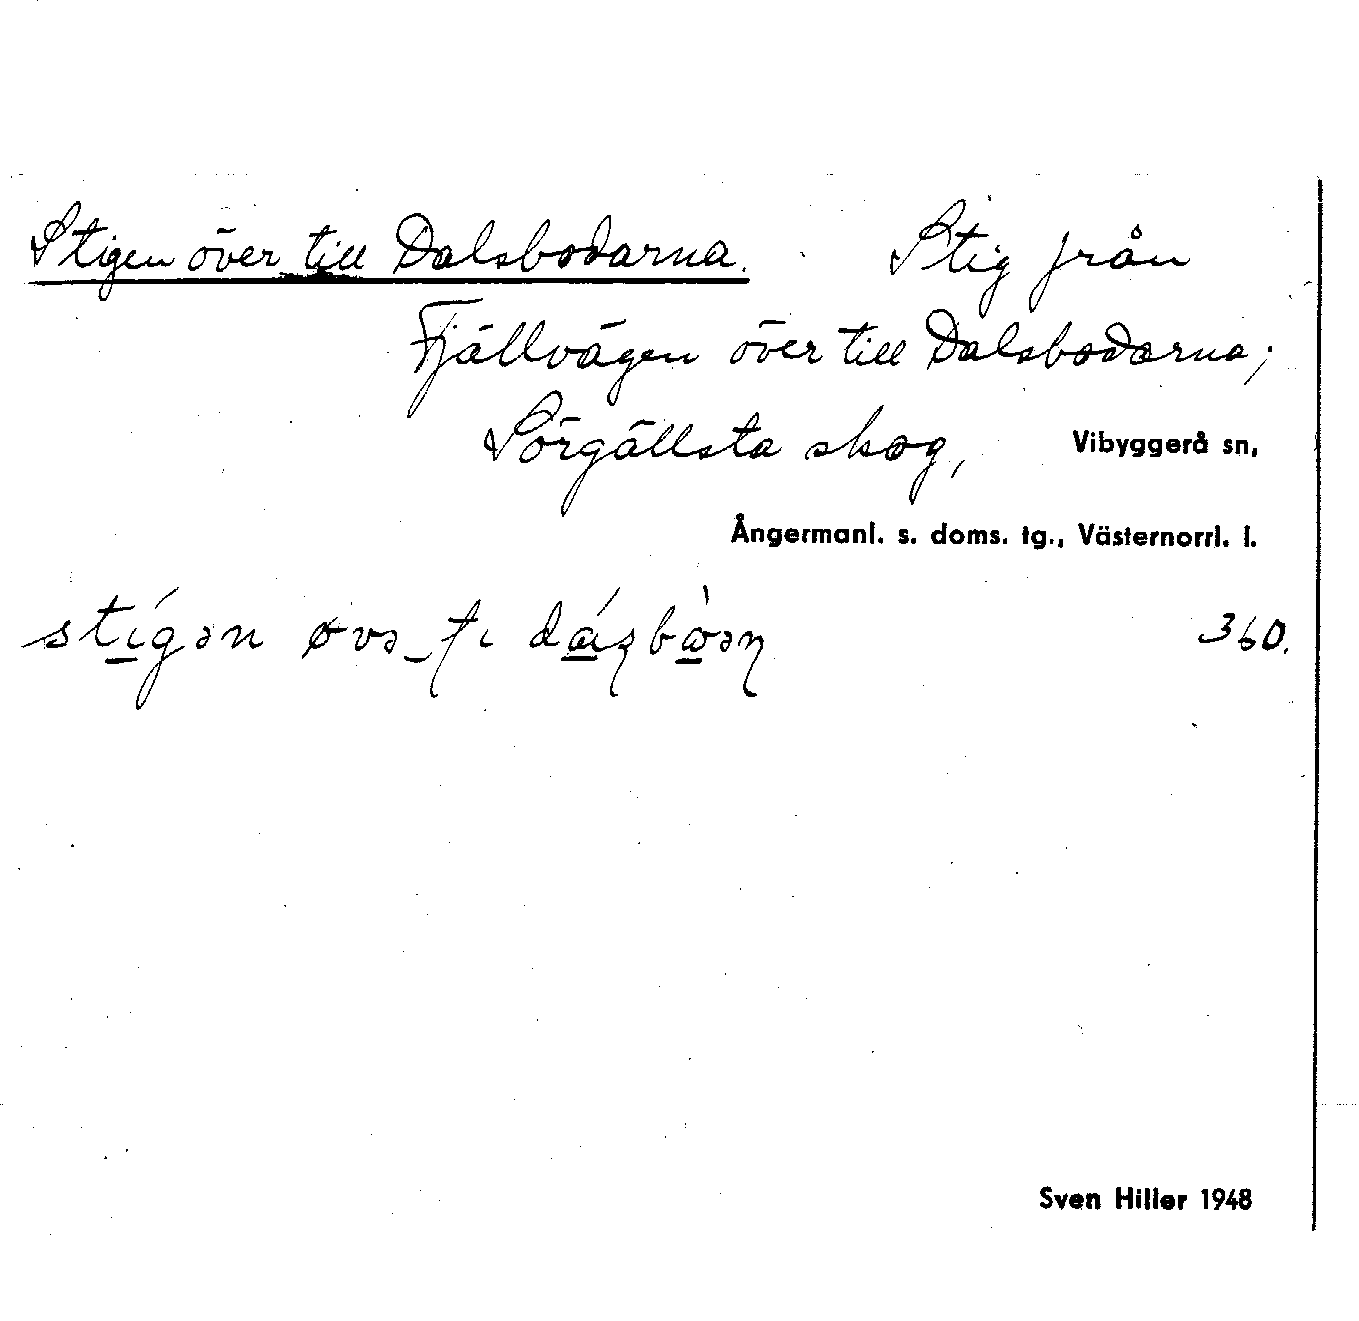 Stigen över till Dalsbodarna. Stig från
Fjällvägen över till Dalsbodarna;
Sörgällsta skog, Vibyggerå sn,
Ångermanl. s. doms. tg., Västernorrl. l.
360.
Sven Hiller 1948